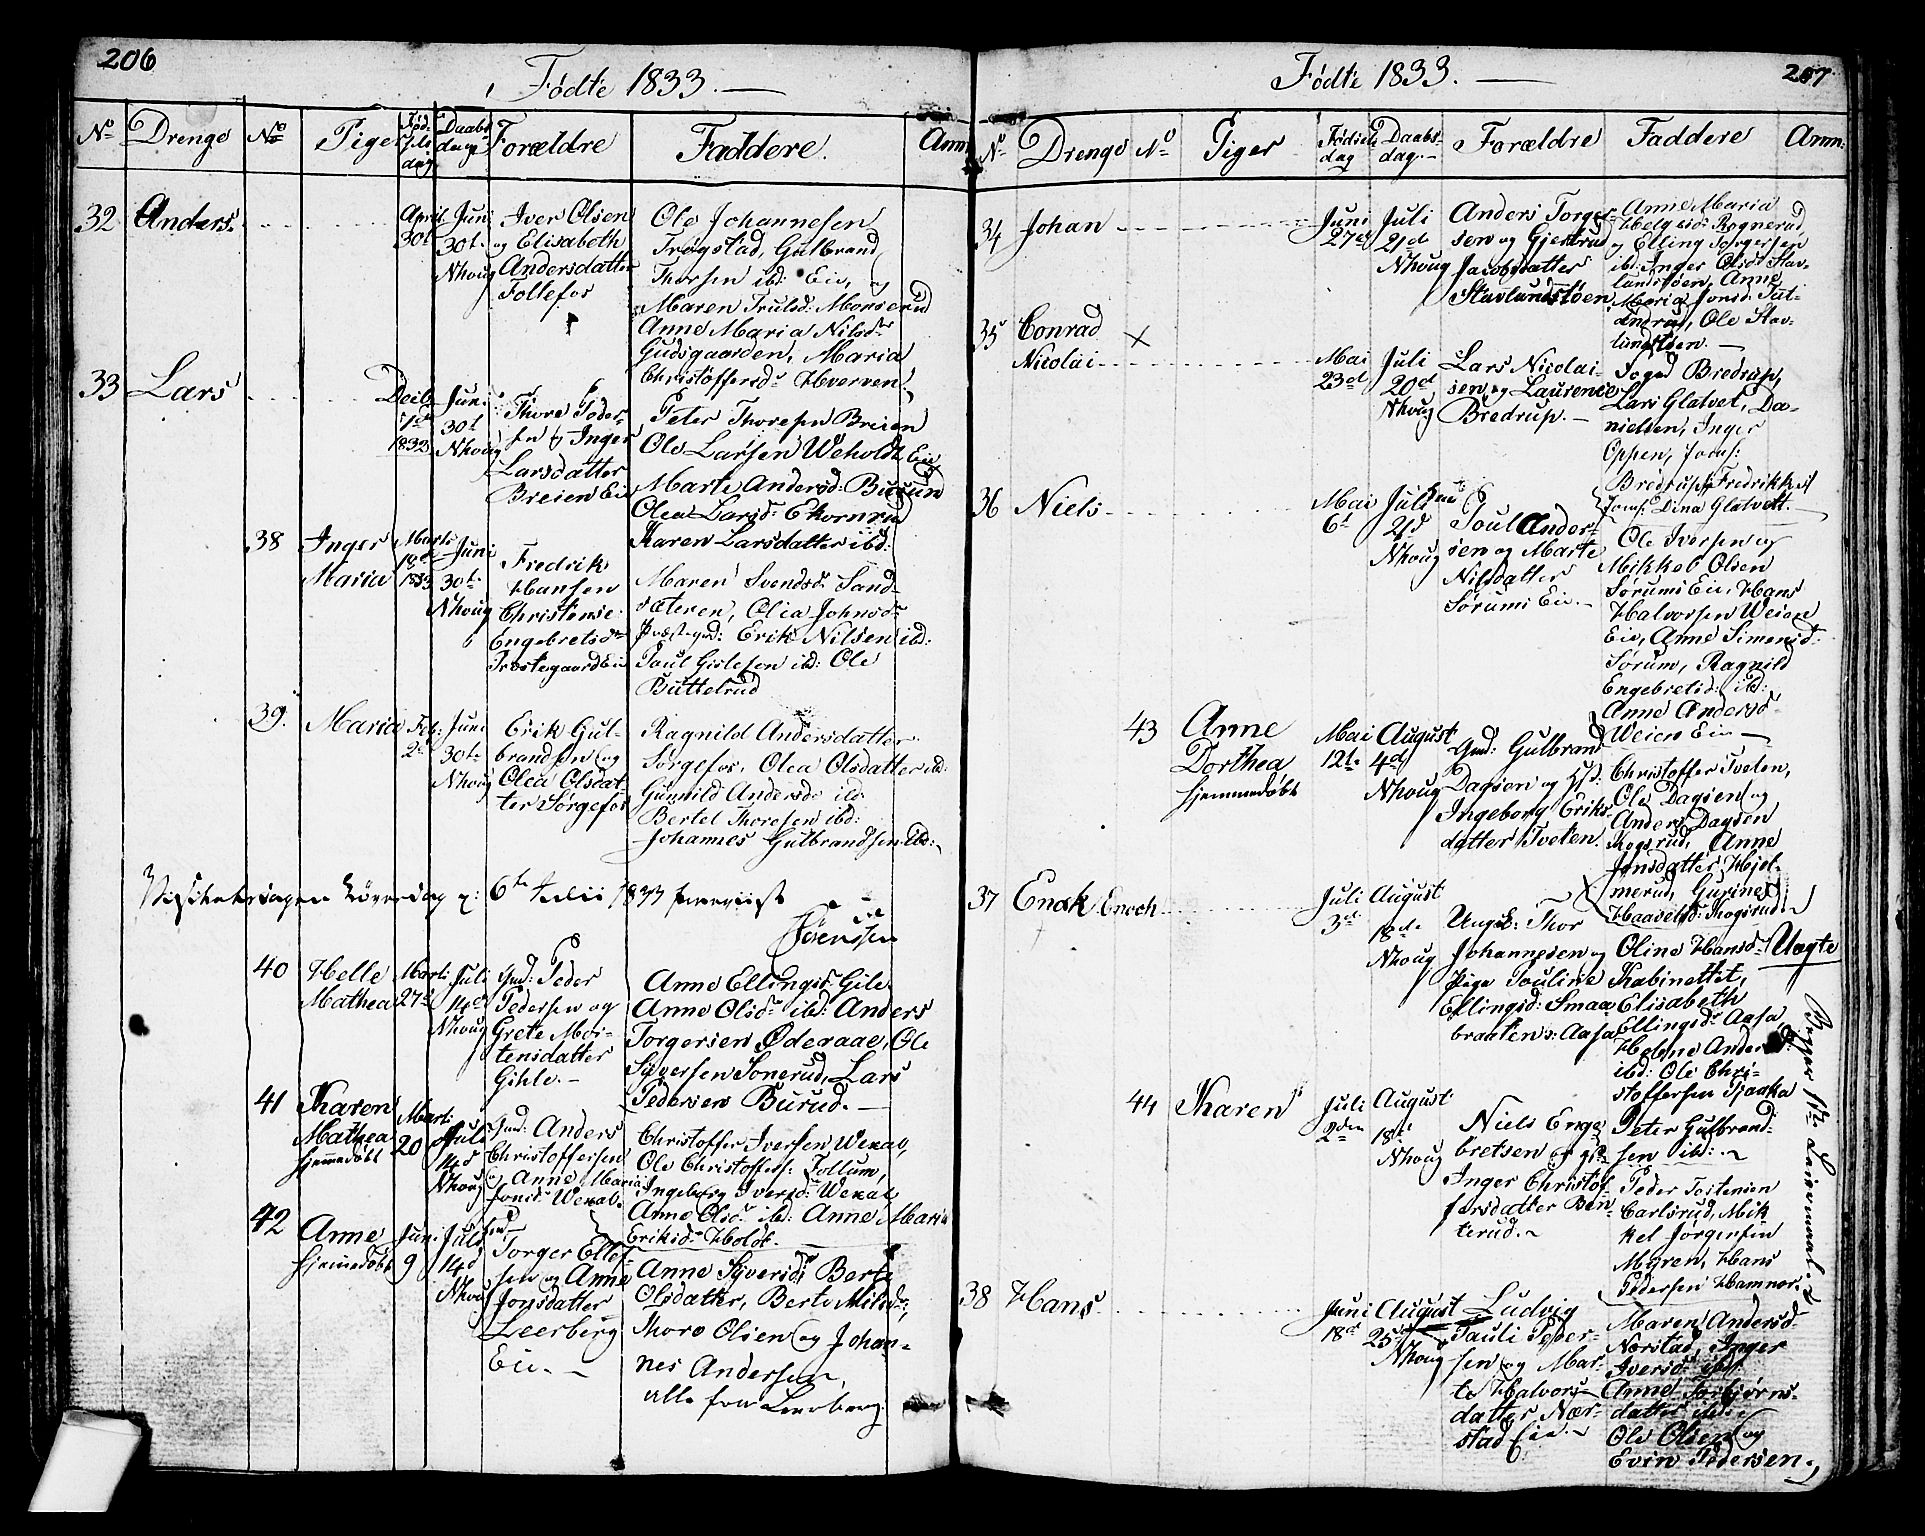 206
Fødte 1833.
No Drenge No Piger Fødselsdag Daabsdag Forældre Faddere. Anm:
32 Anders. April 30t Juni 30t. Nhoug
Iver Olsen
og Elisabeth
Andersdatter
Follefos
Ole Johannesen
Trøgstad, Gulbrand
Thorsen ibd: Eie, og
Maren Trulsd: Monserud
Anne Maria Nilsdr
Gudsgaarden, Maria
Christoffersdr Hverven.
33 Lars Decb. 1832 Juni 30t Nhoug
Thore Peder-
sen og Inger
Larsdatter
Breien Eie
Peter Thoresen Breien
Ole Larsen Weholdt Eie
Marte Andersd: Burud
Olea Larsd: Ekornrud
Karen Larsdatter ibd:
38 Inger Maria Marts 18d 1833 Juni 30t. Nhoug
Fredrik
Hansen
Christense
Engebretsdr
Præstegaard Eie
Maren Svendsdr Sand-
sæteren, Olea Johnsdr
Præstegrd: Erik Nilsen ibd:
Paul Gislesen ibd: Ole
Buttelrud
39. Maria Feb: 2d Juni 30t. Nhoug
Erik Gul-
brandsen og
Olea Olsdat-
ter Sørgefos
Ragnild Andersdatter
Sørgefos, Olea Olsdatter ibd:
Gunnild Andersd: ibd:
Bertel Thoresen ibd:
Johannes Gulbrandsen ibd:
6te Julii 1833
40 Helle Mathea Marti 27d Juli 14d Nhoug
Gmd: Peder
Pedersen og
Grete Mor-
tensdatter
Gihle.
Anne Ellingsdr Gile
Anne Olsdr ibd: Anders
Torgersen Øderaae, Ole
Syversen Sonerud, Lars
Pedersen Burud.
41 Karen Mathea hjemmedøbt Marti 20 Juli 14d Nhoug
Gmd: Anders
Christoffersen
og Anne Maria
Jonsdr Wexal.
Christoffer Iversen Wexal,
Ole Christoffers: Follum,
Ingeborg Iversdr Wexal,
Anne Olsdr ibd: Anne Maria
Eriksdr Holdt.
42 Anne hjemmedøbt Juni 9 Juli 14d Nhoug
Torger Ellef-
sen og Anne
Jonsdatter
Leerberg
Eie.
Anne Syversdr Berte
Olsdatter, Berte Nilsdr,
Thore Olsen og Johan-
nes Andersen,
alle fra Leerberg.
207
Fødte 1833.
No Drenge No Piger Fødselsdag Daabsdag. Forældre Faddere Anm:
34 Johan Juni 27d Juli 21d Nhoug
Anders Torger-
sen og Gjertrud
Jacobsdatter
Stavlundstøen
Anne Maria
Helgesdr Rognerud,
og Elling Torgersen
ibd: Inger Olsdr Stav-
lundstøen, Anne
Maria Jonsd: Tat-
andrud, Ole Stav-
lundstøen.
35 Conrad Nicolai X Mai 23d Juli 20d Nhoug
Lars Nicolai-
sen og Laurence
Bredrup.
Foged Bredrup,
Lars Glatvet, Da-
nielsen, Inger
Oppen, Jomf:
Bredrup, Fredrikke
Jomf: Dina Glatvett.
36 Niels Mai 6t Juli 21d Nhoug
Poul Ander-
sen og Marte
Nilsdatter
Sørums Eie.
Ole Iversen og
Mikkel Olsen
Sørums Eie, Hans
Halvorsen Weien
Eie, Anne Simensd:
Sørum, Ragnild
Engebretsd: ibd:
Anne Andersdr
Weien Eie
43 Anne Dorthea hjemmedøbt Mai 12t. August 4d Nhoug
Gmd: Gulbrand
Dagsen og Hst:
Ingeborg Eriks-
datter Tveten.
Christoffer Tveten,
Ole Dagsen og
Anders Dagsen
Skogsrud, Anne
Jonsdatter Hjel-
merud, Gurine
Haavelsd: Skogsrud.
37 Enok Enoch Juli 3d August 18d. Nhoug
Ungk: Thor
Johannesen og
Pige Pouline
Ellingsd: Smaa-
braaten v: Aasa
Oline Hansdr
Kabinettet,
Elisabeth
Ellingsdr Aasa,
Helene Andersd:
ibd: Ole Chri-
stoffersen Tjaaka
Uægte
44 Karen Juli 2den August 18d Nhoug
Niels Enge-
bretsen og
Inger Christof-
fersdatter Ben-
terud.
Peter Gulbrand-
sen ibd:
Peder Torstensen
Carlsrud, Mik-
kel Jørgensen
Myren, Hans
Pedersen Hamnor.
38 Hans. Juni 18d August 25d Nhoug
Ludvig
Pauli Peder-
sen og Mar-
te Halvors-
datter Nær-
stad Eie.
Maren Andersd.
Nærstad, Inger
Iversdr ibd:
Anne Torbjørns-
datter ibd:
Ole Olsen og
Even Pedersen.